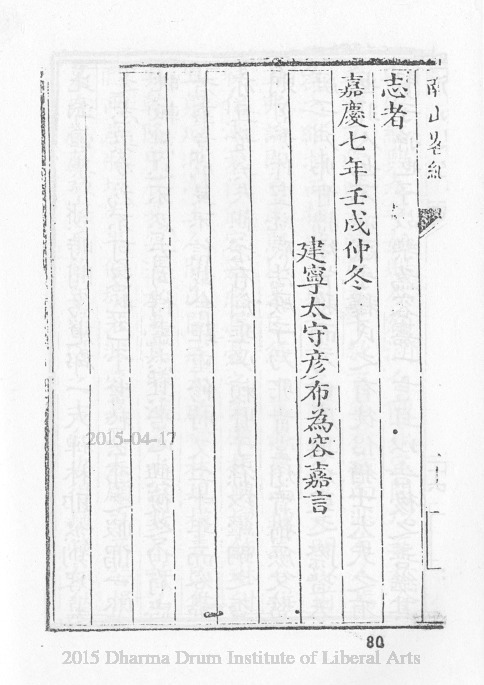 志者
嘉慶七年壬戌仲冬
建寧太守彥布為容嘉言
2015-04-17
80
2015 Dharma Drum Institute of Liberal Arts